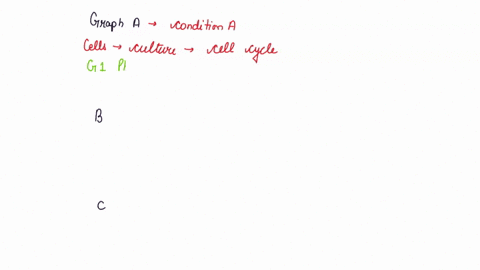 Graph A → condition A
Cells → culture → cell cycle
G1 Pl
B
C